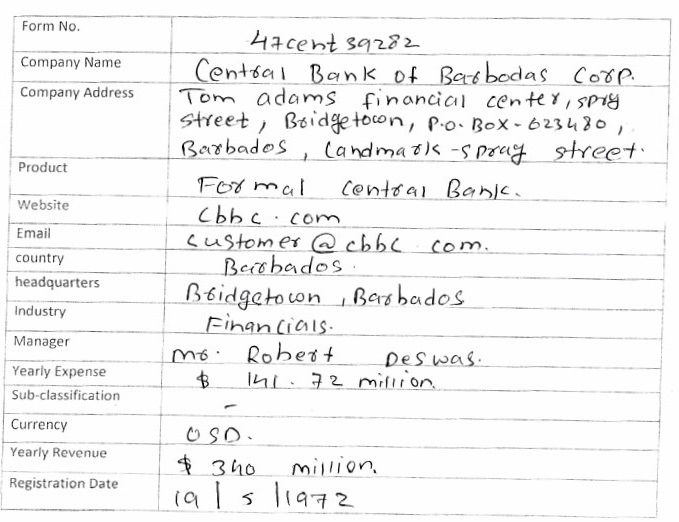 Form No. 47cent39282
Company Name Central Bank of Barbodas Corp.
Company Address Tom adams financial center, spry
street, Bridgetown, P.O. Box - 623480,
Barbados, Landmark - spray street.
Product Formal Central Bank.
Website cbbc.com
Email customer@cbbc.com.
country Barbados.
headquarters Bridgetown, Barbados
Industry Financials.
Manager Mr. Robert Deswas.
Yearly Expense $ 141.72 million
Sub-classification -
Currency USD.
Yearly Revenue $ 340 million.
Registration Date 19/5/1972